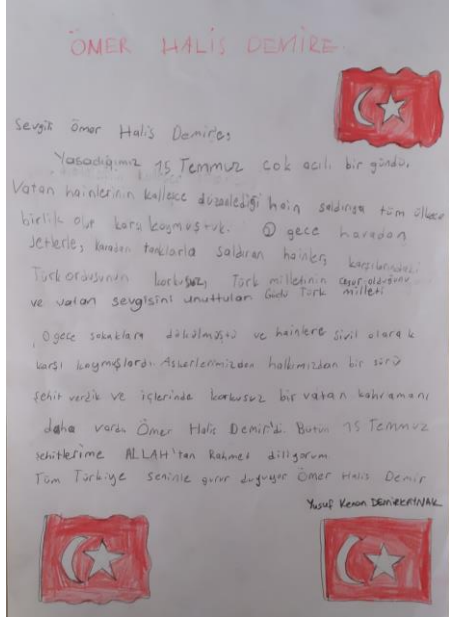 ÖMER HALİS DEMİRE
Sevgili Ömer Halis Demir'e;
Yaşadığımız 15 Temmuz çok acılı bir gündü.
Vatan hainlerinin kalleşce düzenlediği hain saldırıya tüm ülkece
birlik olup karşı koymuştuk. O gece havadan
Jetlerle, karadan tanklarla saldıran hainler, karşılarındaki
Türk ordusunun korkusuz, Türk milletinin cesur olduğunu
ve vatan sevgisini unuttular Türk milleti
O gece sokaklara dökülmüştü ve hainlere sivil olarak
karşı koymuşlardı. Askerlerimizden halkımızdan bir sürü
şehit verdik ve içlerinde korkusuz bir vatan kahramanı
daha vardı Ömer Halis Demir'di. Bütün 15 Temmuz
şehitlerime ALLAH'tan Rahmet diliyorum
Tüm Türkiye seninle gurur duyuyor Ömer Halis Demir
Yusuf Kenan DEMİRKAYNAK